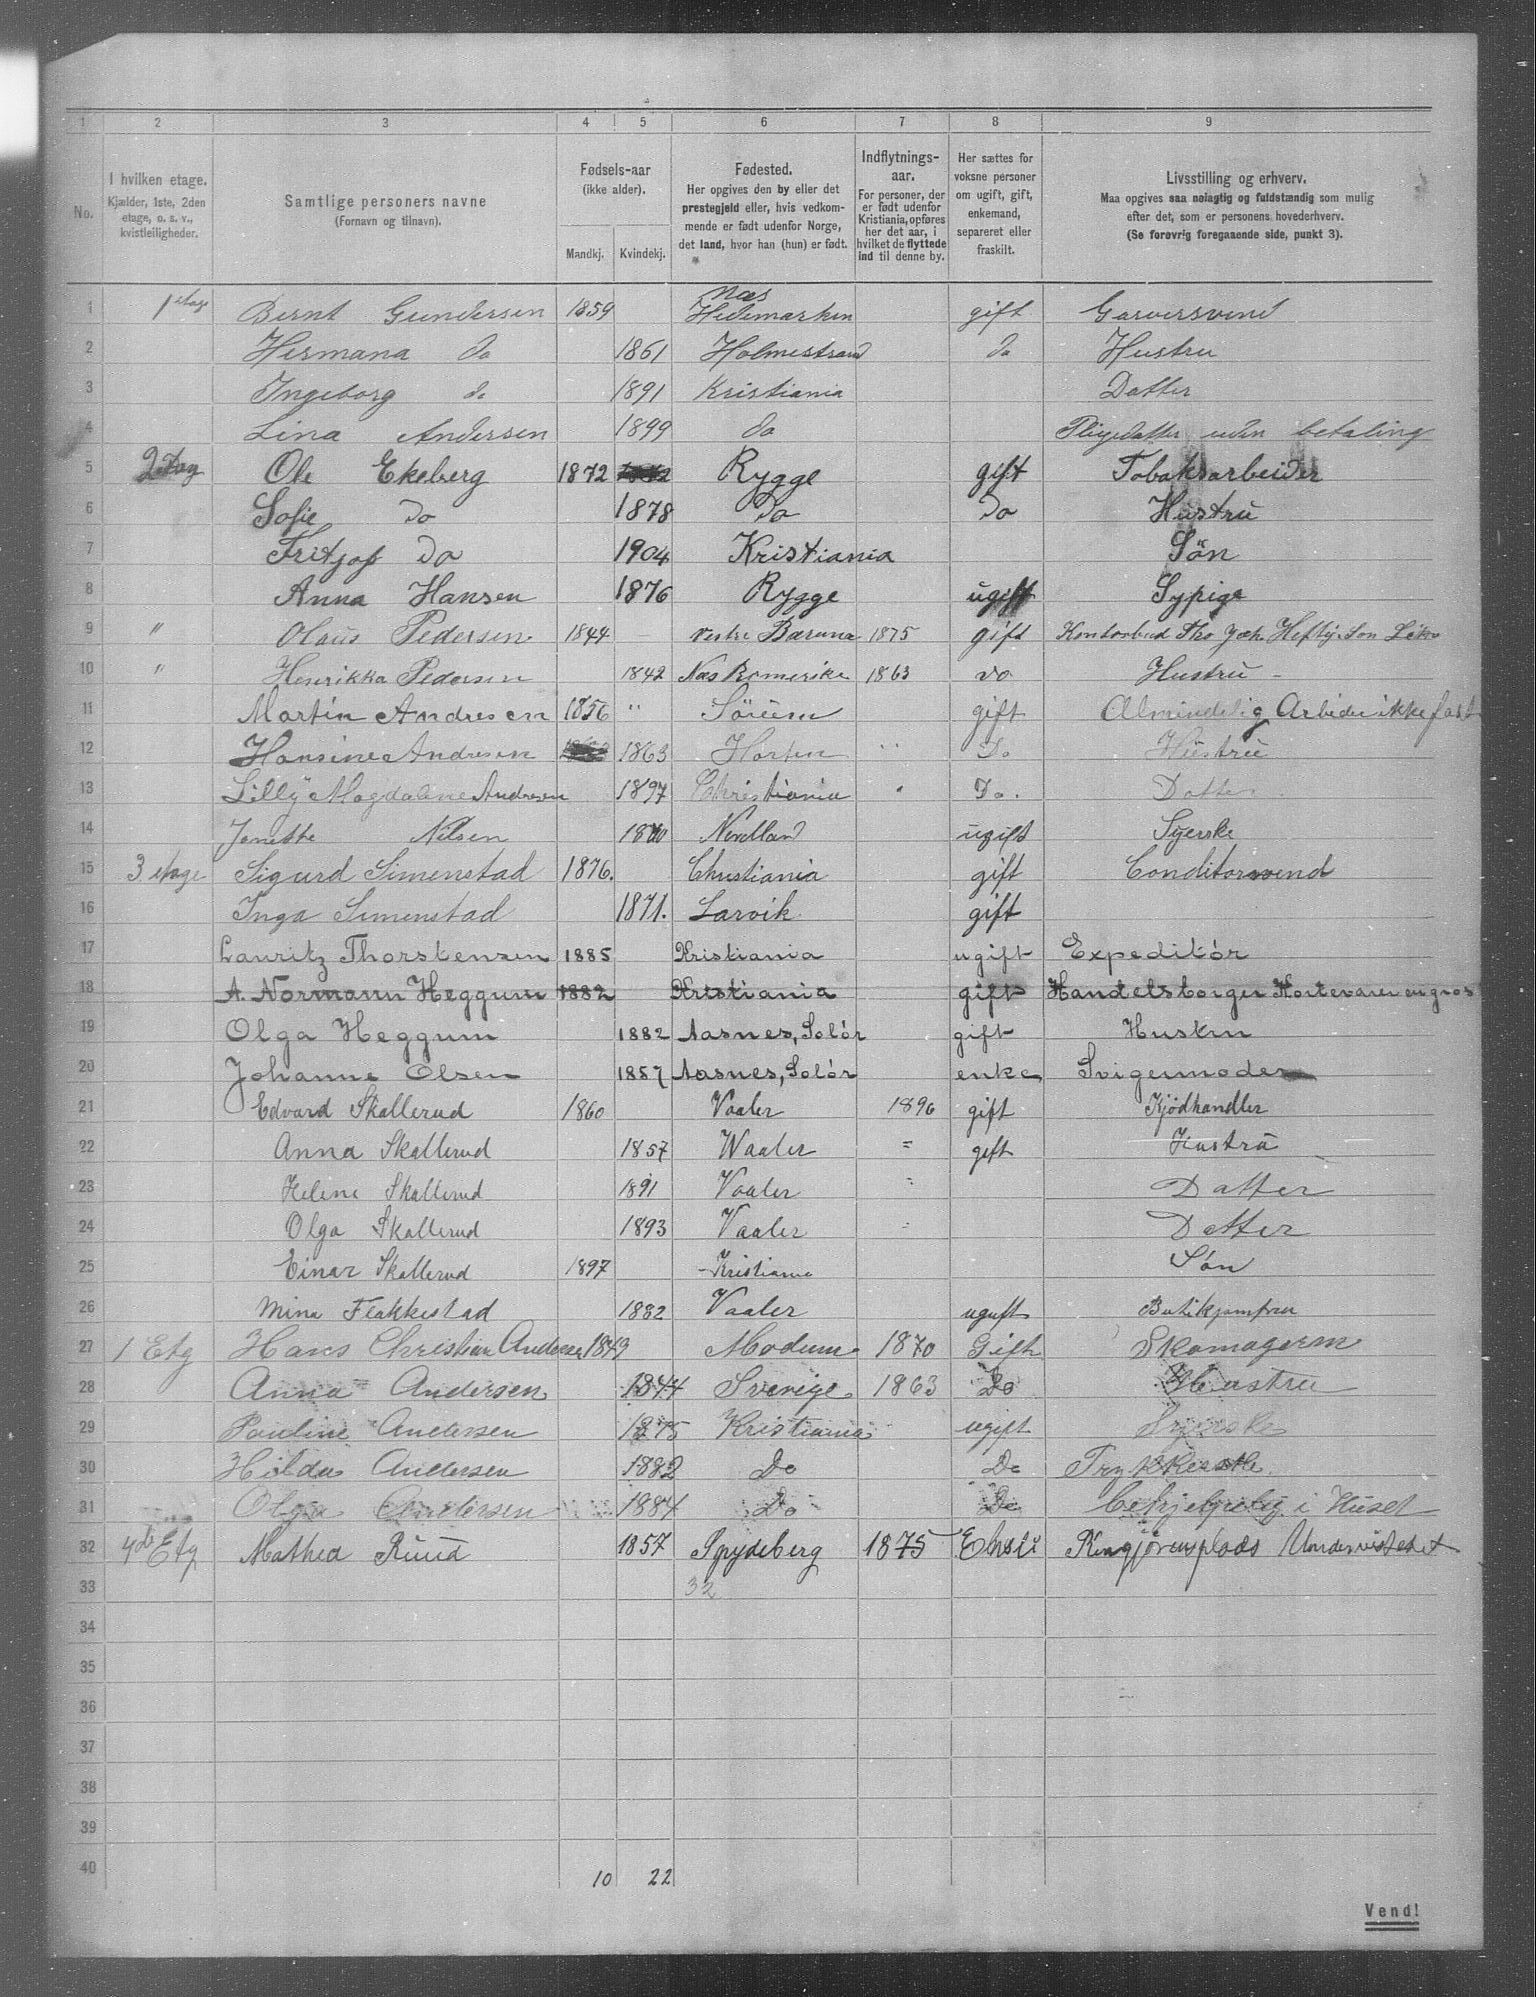 1 2 3 4 5 6 7 8 9
No. I hvilken etage. Kjælder, 1ste, 2den etage, o. s. v., kvistleiligheder. Samtlige personers navne (Fornavn og tilnavn). Fødsels-aar (ikke alder). Mandkj. Kvindekj. Fødested. Her opgives den by eller det prestegjeld eller, hvis vedkommende er født udenfor Norge, det land, hvor han (hun) er født. Indflytnings-aar. For personer, der er født udenfor Kristiania, opføres her det aar, i hvilket de flyttede ind til denne by. Her sættes for voksne personer om ugift, gift, enkemand, separeret eller fraskilt. Livsstilling og erhverv. Maa opgives saa nøiagtig og fuldstændig som mulig efter det, som er personens hovederhverv. (Se forøvrig foregaaende side, punkt 3).
1 1 etage Bernt Gundersen 1859 Næs Hedemarken gift Garversvend
2 Hermana do 1861 Holmestrand do Hustru
3 Ingeborg do 1891 Kristiania Datter
4 Lina Andersen 1899 do Pleiedatter uden betaling
5 2 Etag Ole Ekeberg 1872 Rygge gift Tobaksarbeider
6 Sofie Do 1878 Do Do Hustru
7 Fritjof Do 1904 Kristiania Sön
8 Anna Hansen 1876 Rygge ugift Sypige
9 " Olaus Pedersen 1844 Vestre Bærum 1875 gift Kontorbud Tho Joh. Heftye & Søn
10 " Henrikka Pedersen 1842 Næs Romerike 1863 Do Hustru
11 Martin Andresen 1856 " Sörum gift Almindelig Arbeider ikke fast
12 Hansine Andresen 1863 Horten " Do Hustru
13 Lilly Magdaline Andresen 1897 Christiania " Do. Datter
14 Jenette Nilsen Nordland ugift Syerske
15 3 etage Sigurd Simenstad 1876. Christiania gift Conditorsvend
16 Inga Simenstad 1871. Larvik gift
17 Lauritz Thorstensen 1885 Kristiania ugift Expeditør
18 A. Normann Heggum 1882 Kristiania gift Handelsborger Kortevarer en gros
19 Olga Heggum 1882 Aasnes, Solør gift Hustru
20 Johanne Olsen 1857 Aasnes, Solør enke Svigermoder
21 Edvard Skallerud 1860 Vaaler 1896 gift Kjødhandler
22 Anna Skallerud 1857 Waaler = gift Hustru
23 Helene Skallerud 1891 Vaaler = Datter
24 Olga Skallerud 1893 Vaaler = Datter
25 Einar Skallerud 1897 Kristiania Søn
26 Mina Flakkestad 1882 Vaaler ugift Butikjomfru
27 1 Etg Hans Christian Andersen 1849 Modum 1870 Gift Skomagerm
28 Anna Andersen 1844 Sverige 1863 Do Hustru
29 Pauline Andersen 1875 Kristiania ugift Syerske
30 Hilda Andersen 1882 Do Do Trykkerske
31 Olga Andersen 1884 Do Do behjelpelig i Huset
32 4de Etg Mathea Ruud 1857 Spydeberg 1875 Enke Rengjøringsplads Understøttet
33 32
34
35
36
37
38
39
40 10 22
Vend!